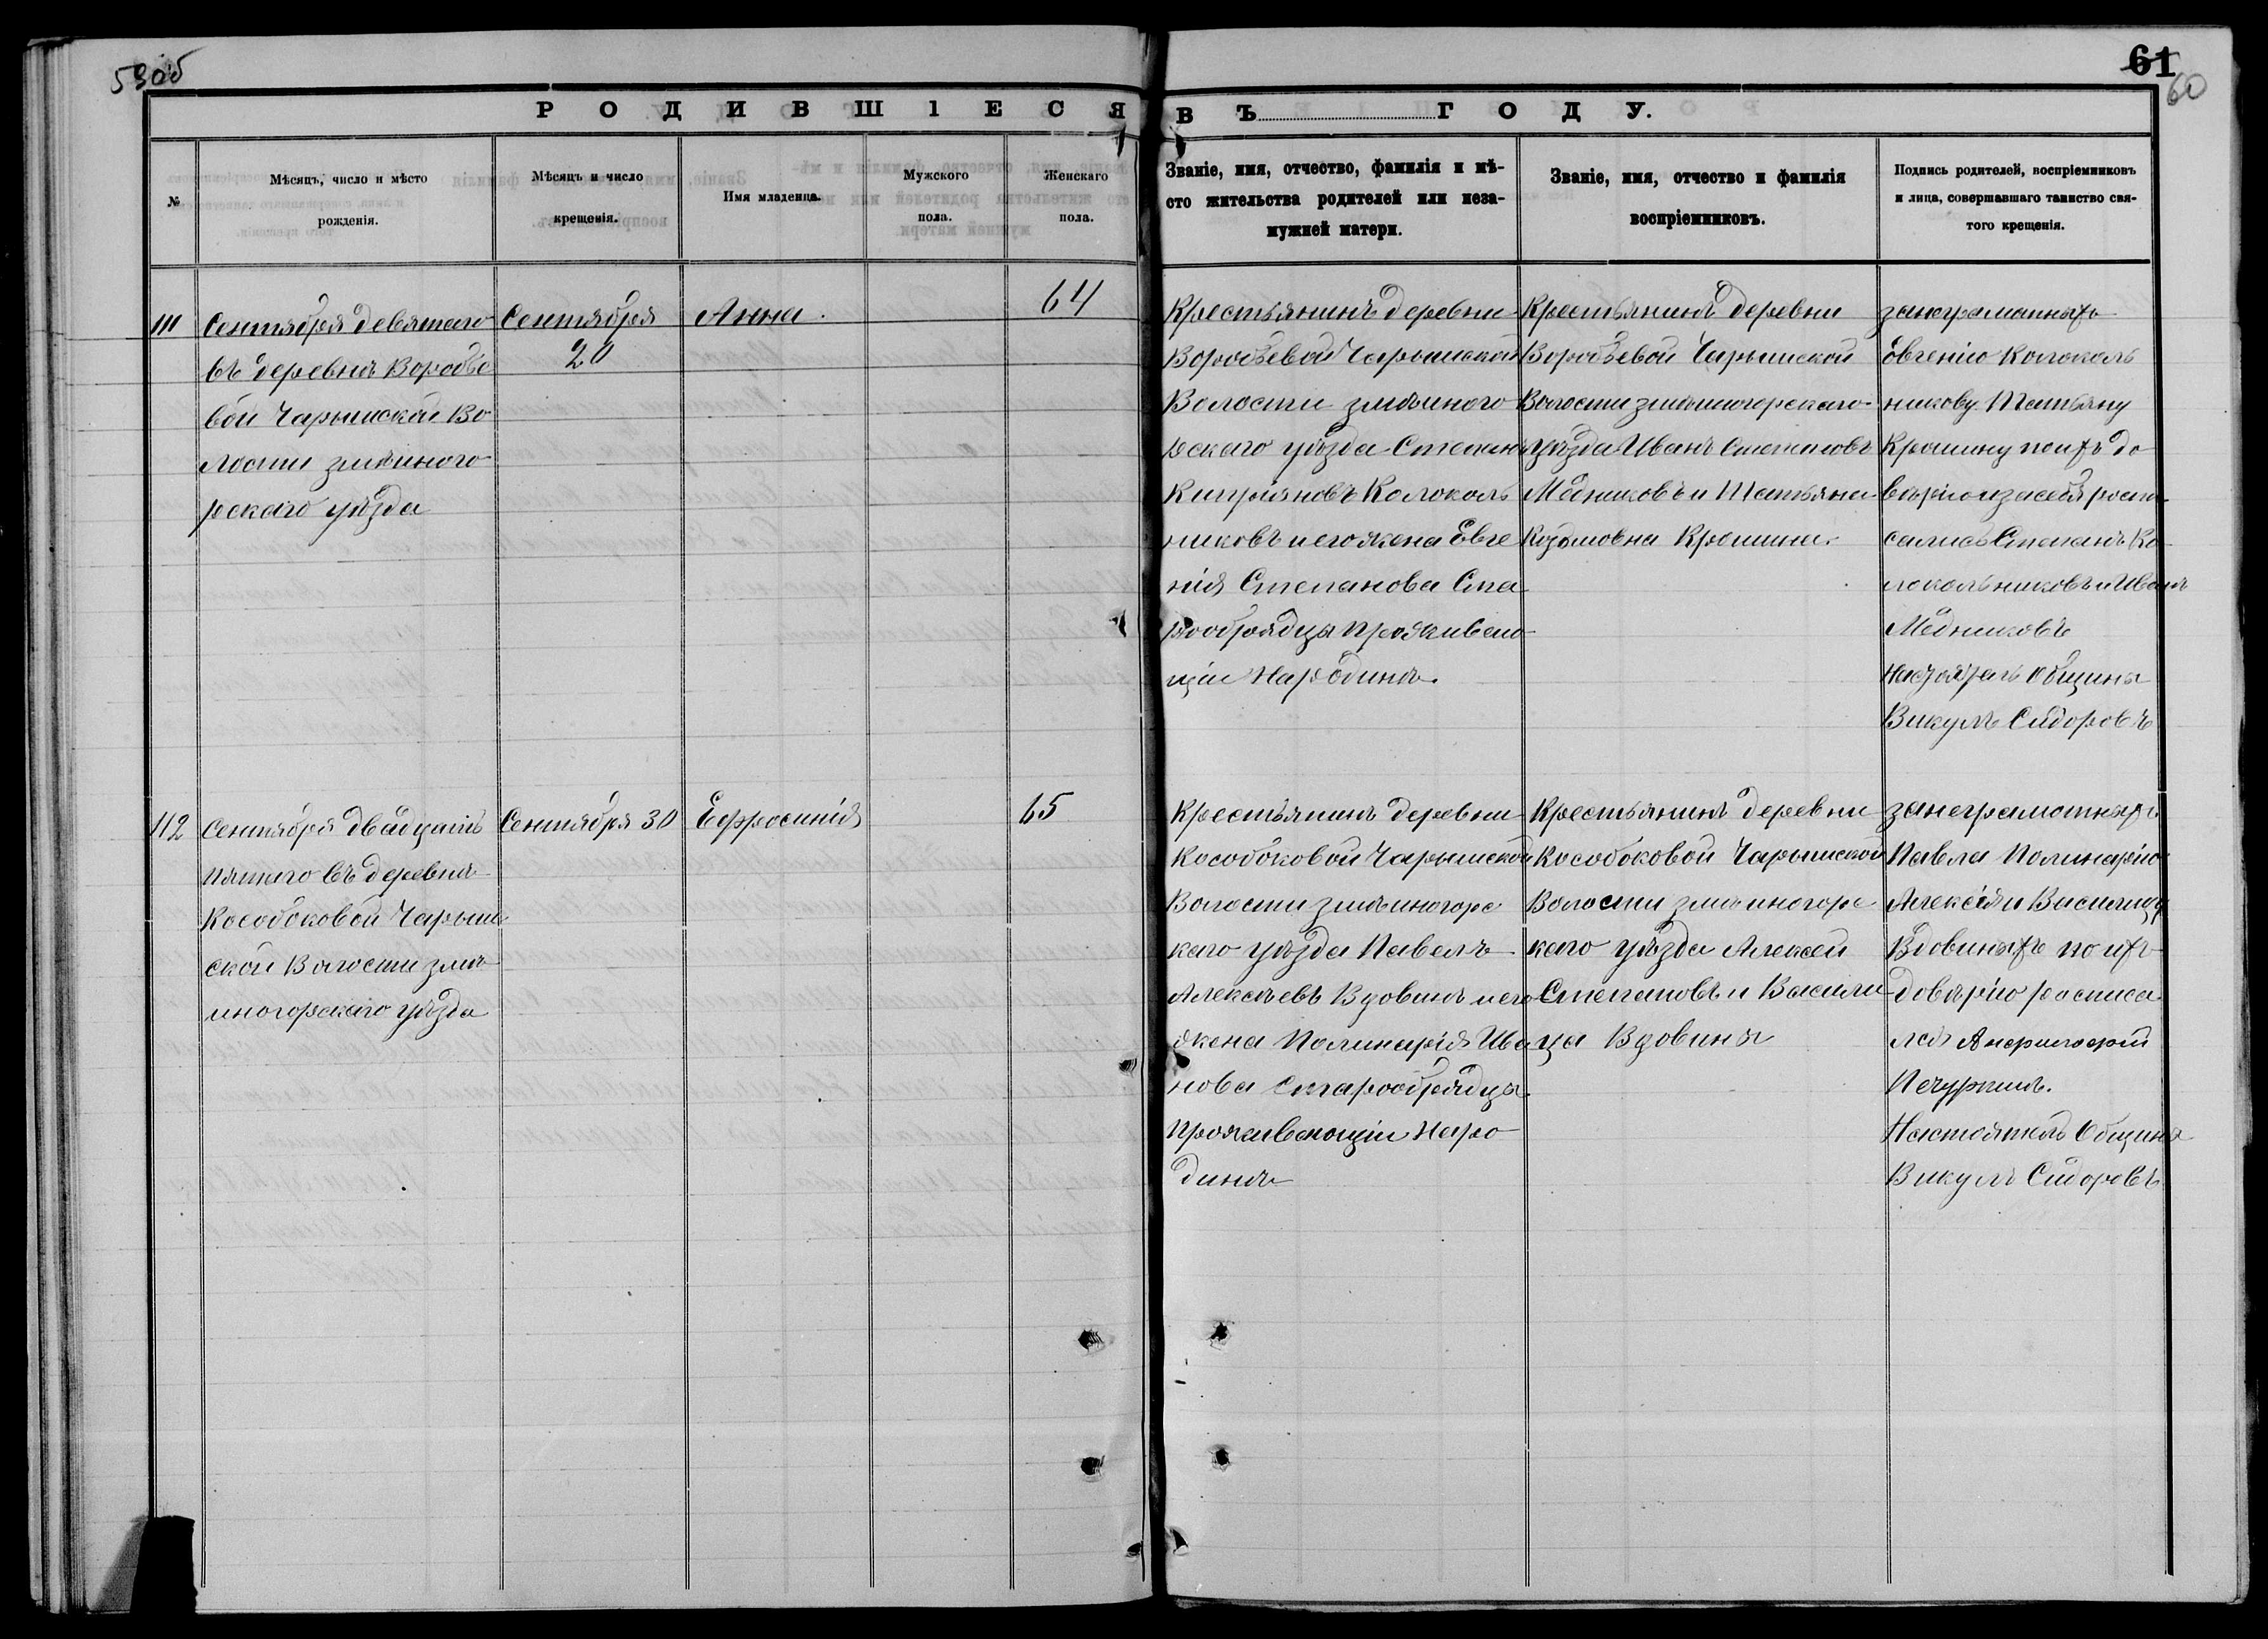 59об
61
60
РОДИВШІЕСЯ ВЪ ГОДУ.
№
Мѣсяцъ, число и мѣсто
рожденія.
Мѣсяцъ и число
крещенія.
Имя младенца.
Мужского
пола.
Женскаго
пола.
Званіе, имя, отчество, фамилія и мѣ-
сто жительства родителей или неза-
мужней матери.
Званіе, имя, отчество и фамилія
воспріемниковъ.
Подпись родителей, воспріемниковъ
и лица, совершавшаго таинство свя-
того крещенія.
111
Сентября девятаго
въ деревнѣ Воробье
вой Чарышской Во
лости змѣиного
рскаго уѣзда
Сентября
20
Анна.
64
Крестьянинъ деревни
Воробьевой Чарышской
Волости змѣиного
рскаго уѣзда Степанъ
Кипріяновъ Колоколь
никовъ и его жена Евге
нія Степанова Ста
рообрядцы Проживаю
щіи Народинѣ.
Крестьянинъ деревни
Воробьевой Чарышской
Волости змѣиногорскаго
уѣзда Иванъ Степановъ
Медниковъ и Татьяна
Козьмовна Крошина.
занеграматныхъ
Овгению Колоколь
никову Татьяну
Крошину поихъ до
вѣрію изасебя роспи
сались Степанъ Ко
локольниковъ и Иванъ
Медниковъ
Настоятель Общины
Викулъ Сидоровъ
112
Сентября двадцать
пятаго въ деревнѣ
Кособоковой Чарыш
ской Волости змѣ
иногорскаго уѣзда
Сентября 30
Ефросинія
65
Крестьянинъ деревни
Кособоковой Чарышской
Волости змѣиногорс
каго уѣзда Павелъ
Алексѣевъ Вдовинъ и его
жена Полинарія Ива
нова Старообрядцы
Проживающіи Наро
динѣ
Крестьянинъ деревни
Кособоковой Чарышской
Волости змѣиногорс
каго уѣзда Алексей
Степановъ и Васили
ца Вдовины
занеграмотныхъ
Павла Полинарію
Алексія и Василицу
Вдовиныхъ по ихъ
довѣрію росписа
лся
Печуркинъ.
Настоятель Общины
Викулъ Сидоровъ